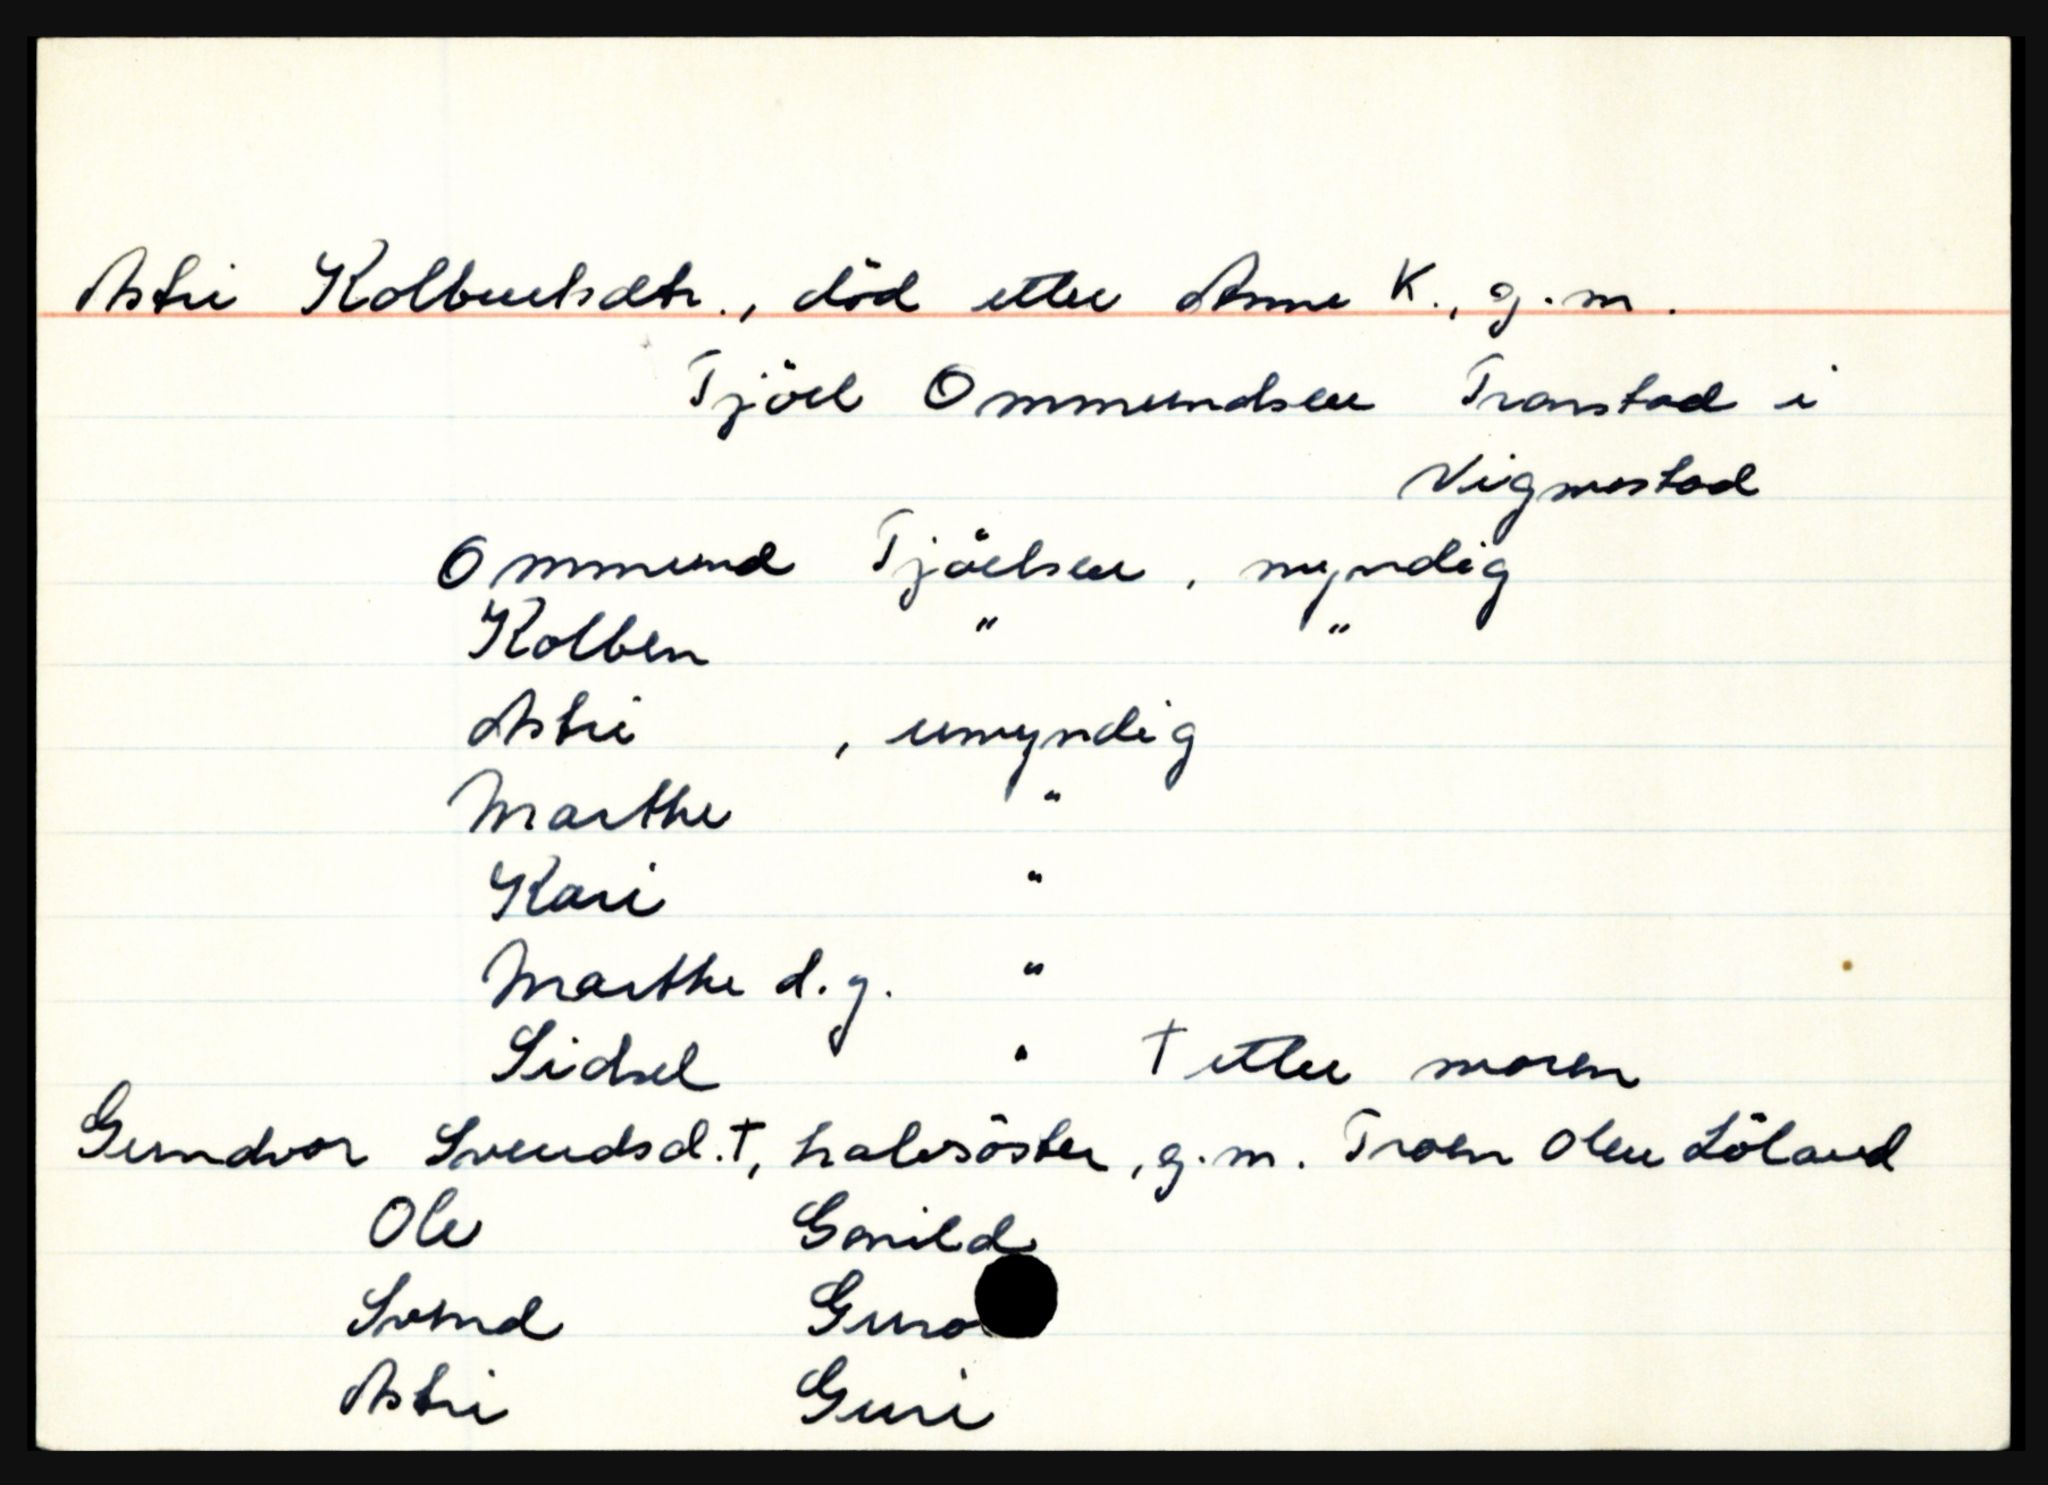 Astri Kolbenhsdtr., död etter Anne K., g.m.
Tjöel Ommundsen Tronstad i
Vigmostad
Ommund Tjöelsen, myndig
Kolben " "
Astri , umyndig
Marthe "
Kari "
Marthe d.y. "
Sidsel " † etter moren
Gundvor Svendsd. †, halvsöster, g.m. Troen Olsen Löland
Ole Gonild
Svend Guro
Astri Guri